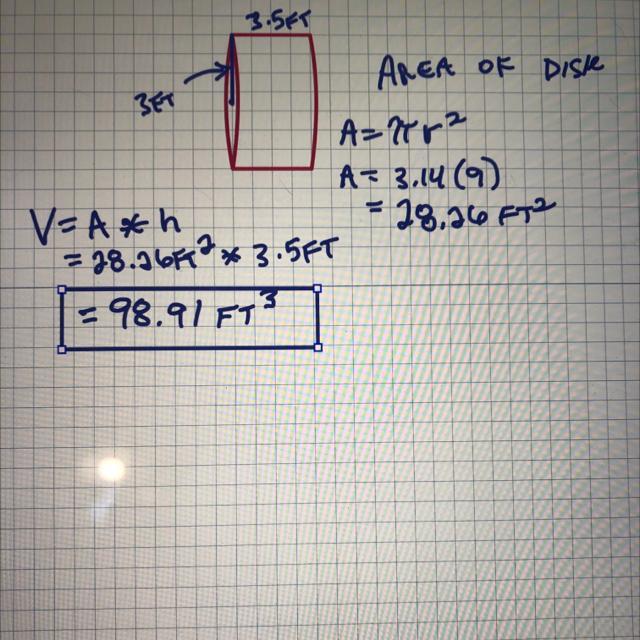 3.5FT
3FT
AREA OF DISK
A = πr²
A = 3.14(9)
= 28.26 FT²
V = A * h
= 28.26FT² * 3.5FT
= 98.91 FT³